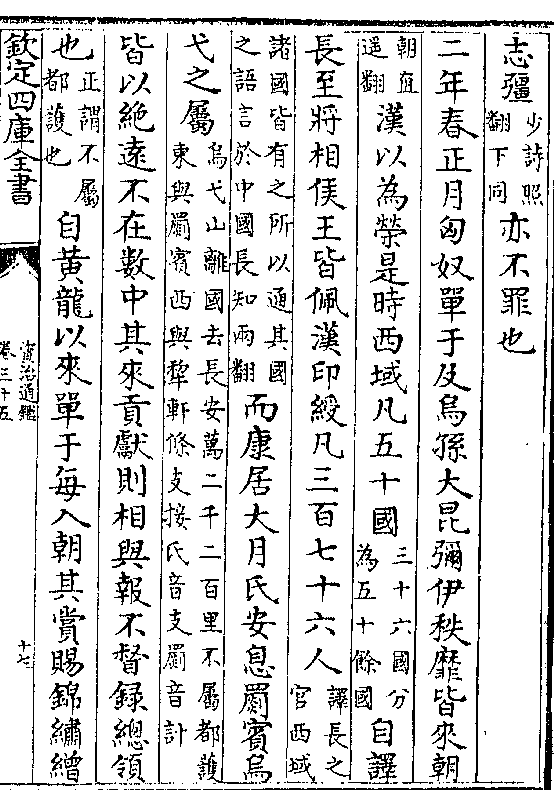 志疆少詩照翻下同亦不罪也
二年春正月匈奴單于及烏孫大昆彌伊秩靡皆來朝
朝直遥翻漢以為榮是時西域凡五十國三十六國分為五十餘國自譯
長至將相侯王皆佩漢印綬凡三百七十六人譯長之官西域
諸國皆有之所以通其國之語言於中國長知兩翻而康居大月氏安息罽賓烏
弋之屬烏弋山離國去長安萬二千二百里不屬都護東與罽賓西與犂軒條支接氏音支罽音計
皆以絶遠不在數中其來貢獻則相與報不督録總領
也正謂不屬都護也自黄龍以來單于每入朝其賞賜錦繡繒
欽定四庫全書
資治通鑑
卷三十五
十七